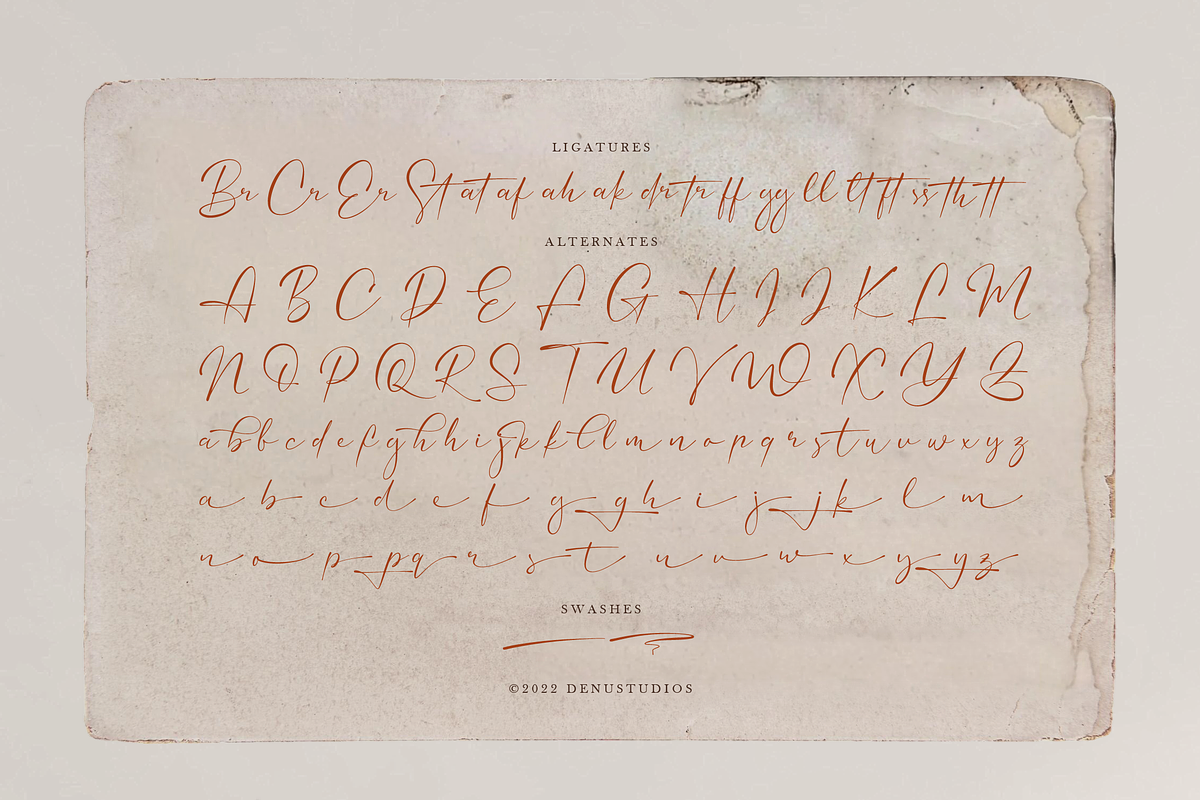 LIGATURES
Br Cr Er St at af ah ak dr tr ff gg ll lt ft ss th tt
ALTERNATES
A B C D E F G H I J K L M
N O P Q R S T U V W X Y Z
a b b c d e f g h h i j k k l l m n o p q r s t u v w x y z
a b c d e f g g h i j j k l m
n o p p q r s t u v w x y y z
SWASHES
©2022 DENUSTUDIOS